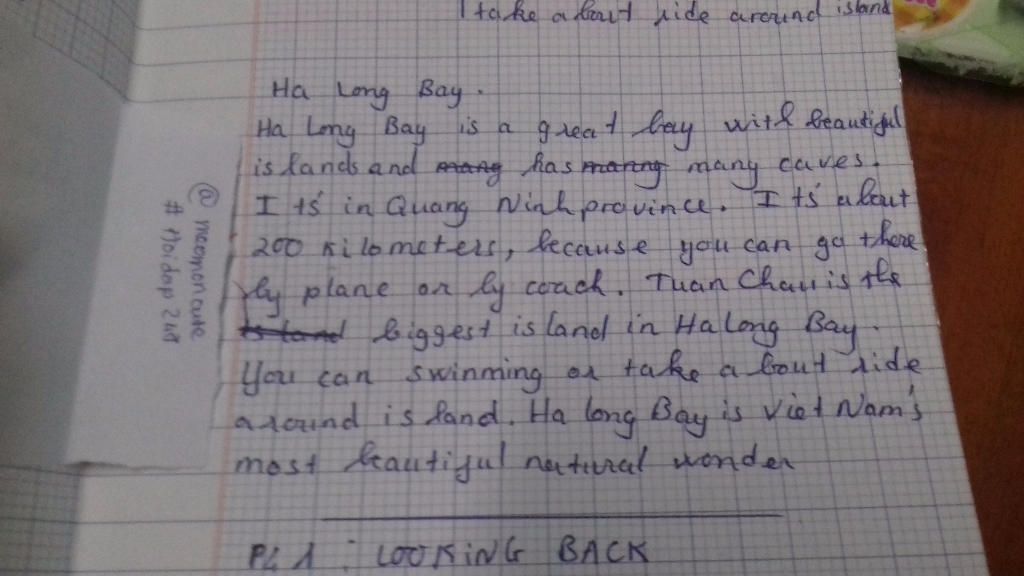 take a bout ride around island
Ha Long Bay.
Ha Long Bay is a great bay with beautiful
islands and mang has manng many caves.
Its' in Quang Ninh province. Its' about
200 kilometers, because you can go there
by plane or by coach. Tuan Chau is the
island biggest island in Ha Long Bay.
You can swinming or take a bout ride
around island. Ha long Bay is Viet Nam's
most beautiful natural wonder
LOOKING BACK
@ meomeo
# Hoidap 247